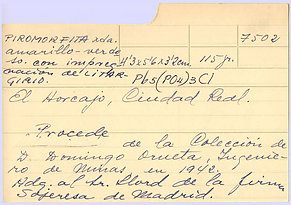 PIROMORFITA xda.
7502
amarillo-verdo
so. con impreg
nación de LITAR
GIRIO.
4'3x5'6x3'2cm. 115 gr.
Pb5(PO4)3Cl
El Horcajo, Ciudad Real.
Procede de la Colección de
D. Domingo Orueta, Ingenie-
ro de Minas en 1942.
Adq. al Sr. Llord de la firma
de Madrid.